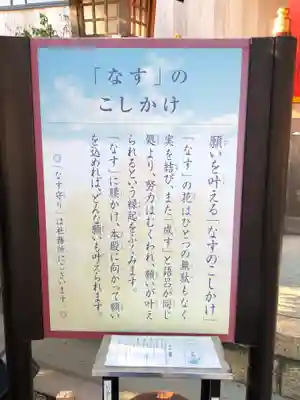 「なす」の
こしかけ
願いを叶える「なすのこしかけ」
「なす」の花はひとつの無駄もなく
実を結び、また「成す」と語呂が同じ
処より、努力はむくわれ、願いが叶え
られるという縁起をふくみます。
「なす」に腰かけ、本殿に向かって願い
を込めれば、どんな願いも叶えられます。
◎「なす守り」は社務所にございます。◎